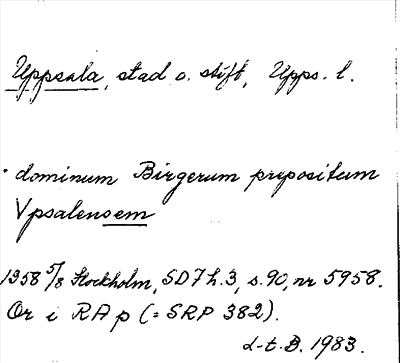 Uppsala, stad o. stift, Upps. l.
dominum Birgerum prepositum
Vpsalensem
1358 5/8 Stockholm, SD 7 h. 3, s. 90, nr 5958.
Or i RA p (= SRP 382).
L-t. B. 1983.